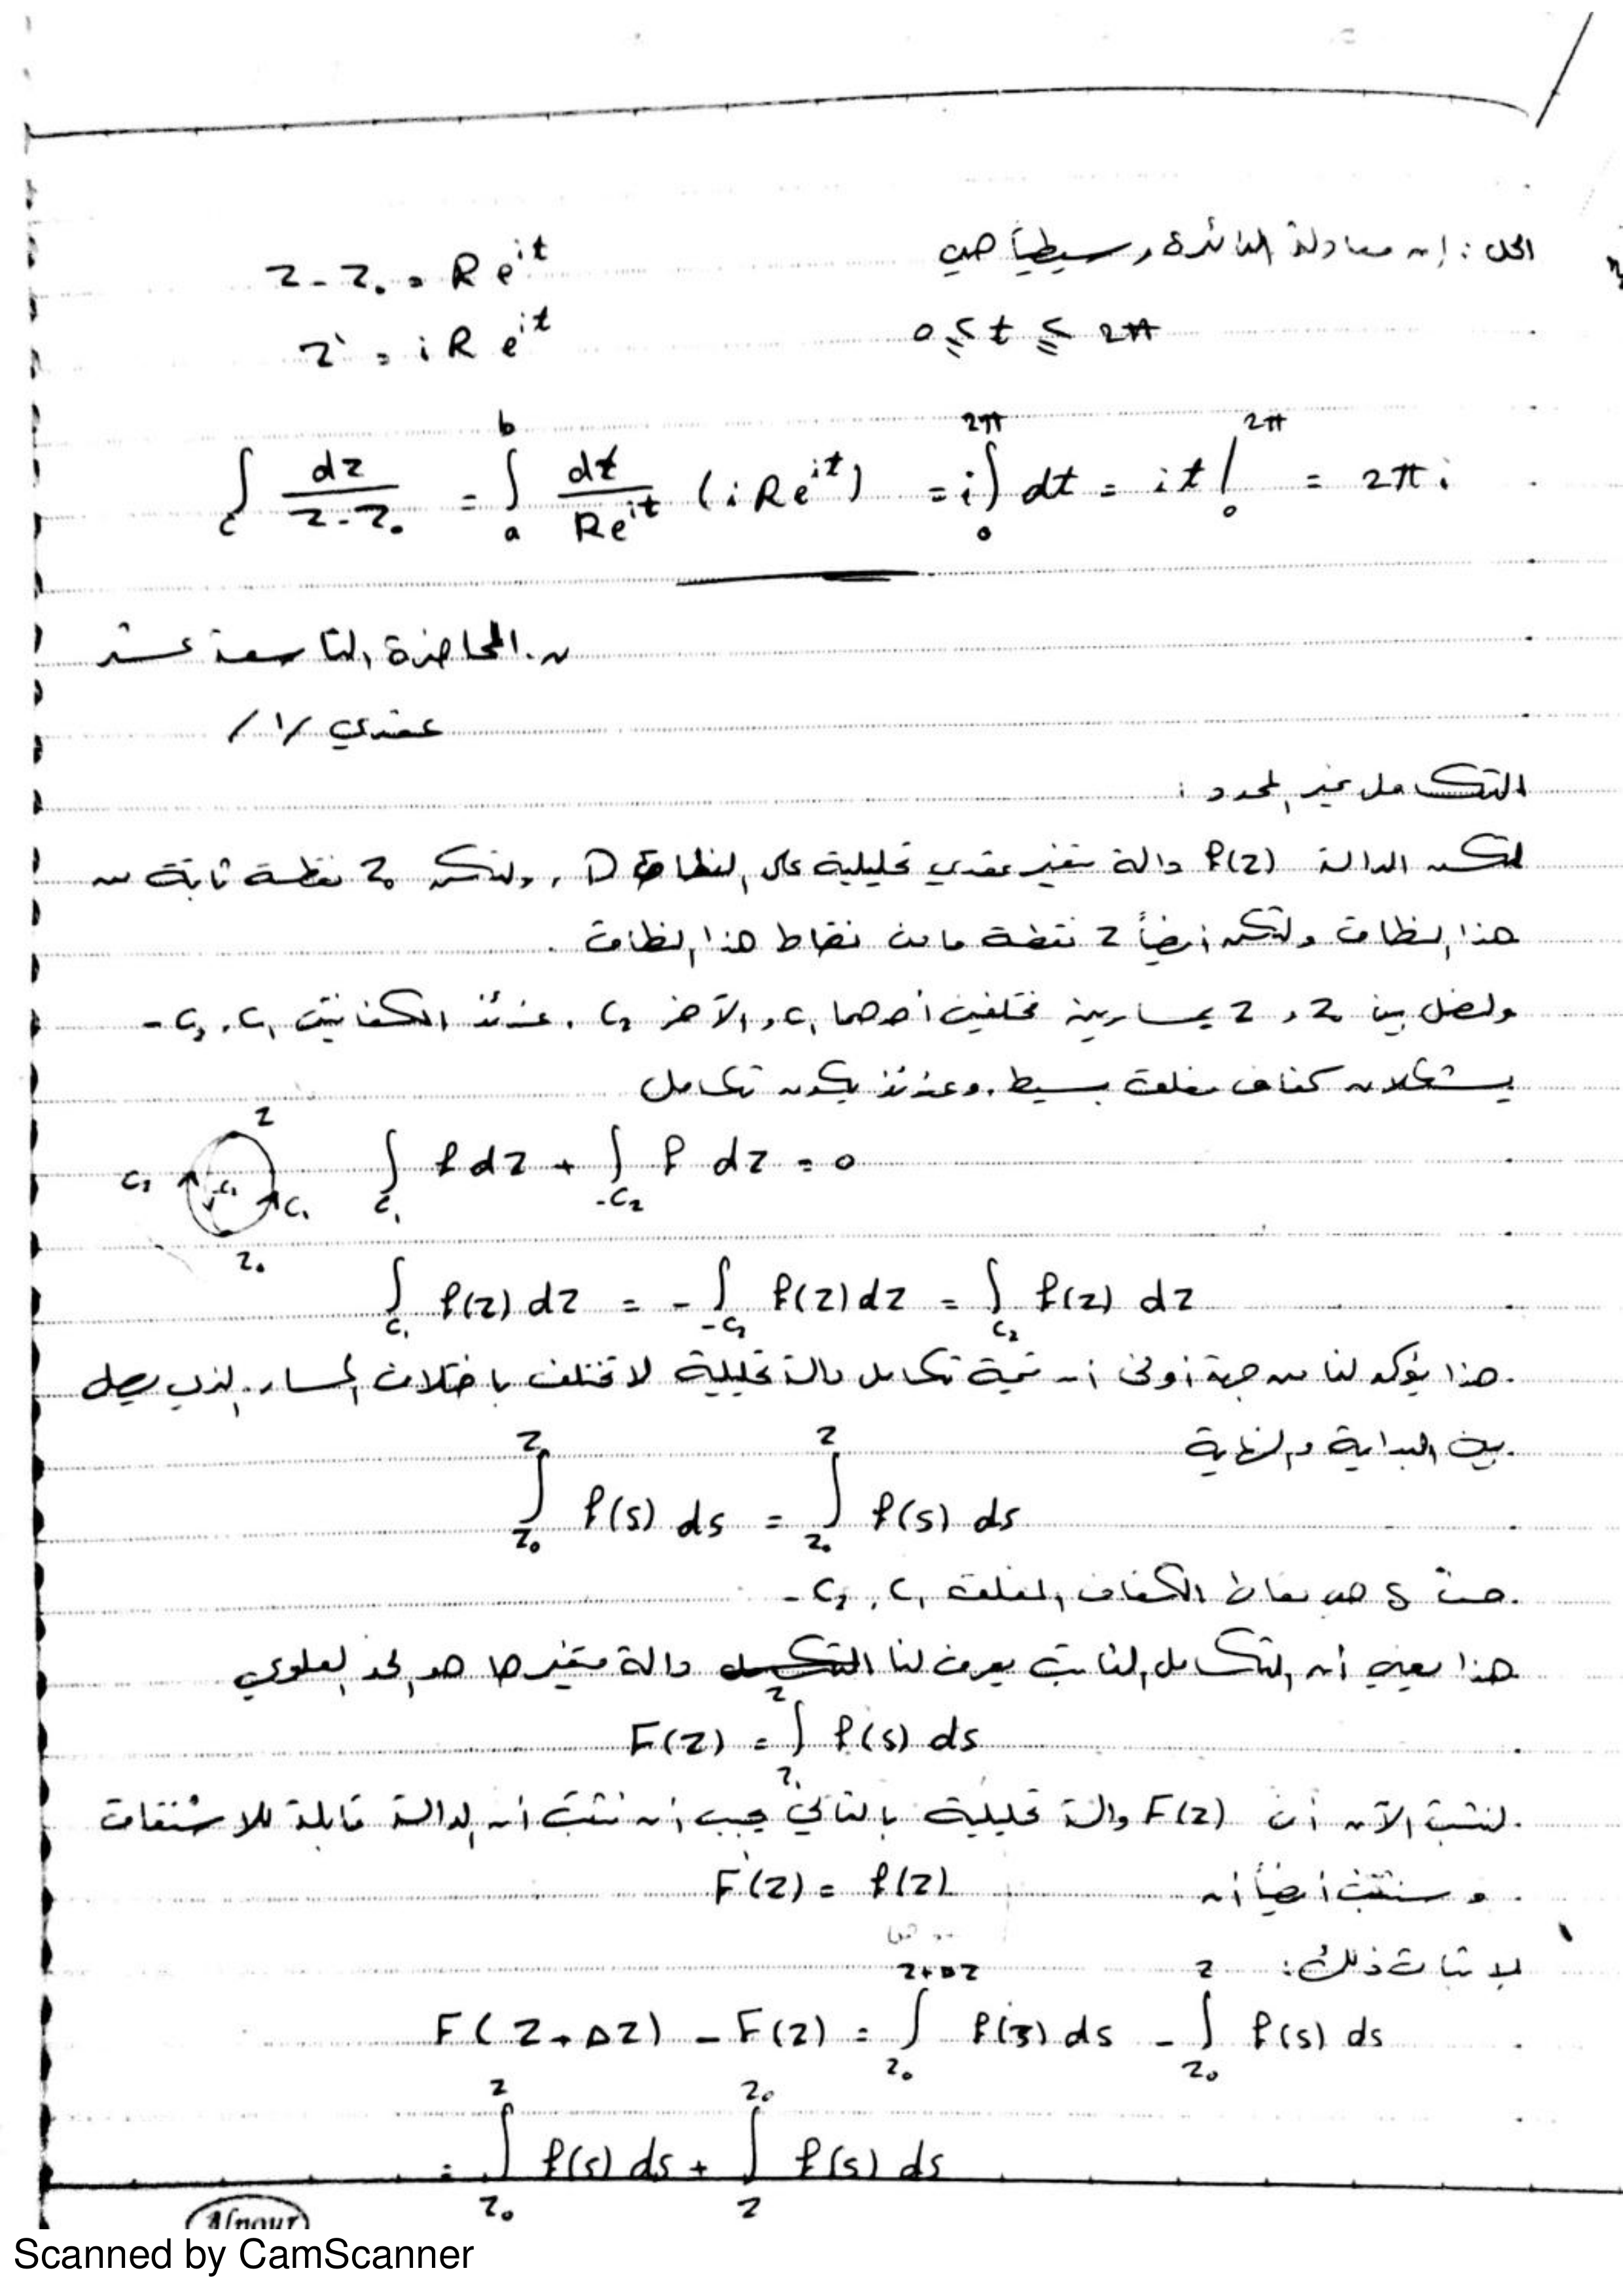 الحل : إن معادلة الدائرة وسيطياً هي z - z₀ = R e^{it}
0 ≤ t ≤ 2π z' = i R e^{it}
∫_c dz/(z - z₀) = ∫_a^b dt/(R e^{it}) (i R e^{it}) = i ∫_0^{2π} dt = it |_0^{2π} = 2π i
المحاضرة التاسعة عشر
عقدي /١/
التكامل غير المحدد :
لتكن الدالة f(z) دالة متغير عقدي تحليلية على النطاق D ، ولتكن z₀ نقطة ثابتة من
هذا النطاق ولتكن أيضاً z نقطة ما من نقاط هذا النطاق .
ولنصل بين z₀ و z بمسارين مختلفين أحدهما c₁ والآخر c₂ . عندئذ الكفافين c₁ , -c₂
يشكلان كفاف مغلق بسيط . وعندئذ يكون تكامل
z
c₂ -c₂ c₁ ∫_{c₁} f dz + ∫_{-c₂} f dz = 0
z₀
∫_{c₁} f(z) dz = - ∫_{-c₂} f(z) dz = ∫_{c₂} f(z) dz
هذا يؤكد لنا من جهة أولى أن قيمة تكامل دالة تحليلية لا تختلف باختلاف المسار الذي يصل
بين البداية والنهاية
∫_{z₀}^{z} f(s) ds = ∫_{z₀}^{z} f(s) ds
حيث s هي نقاط الكفاف المغلق c₁ , -c₂
هذا يعني أن التكامل الثابت يعرف لنا دالة متغيرها هو الحد العلوي
F(z) = ∫_{z₀}^{z} f(s) ds
لنثبت الآن أن F(z) دالة تحليلية بالتالي يجب أن نثبت أن الدالة قابلة للاشتقاق
وسنثبت أيضاً أن F'(z) = f(z)
لإثبات ذلك :
F(z + Δz) - F(z) = ∫_{z₀}^{z+Δz} f(s) ds - ∫_{z₀}^{z} f(s) ds
= ∫_{z₀}^{z} f(s) ds + ∫_{z}^{z₀} f(s) ds
Alnour
Scanned by CamScanner